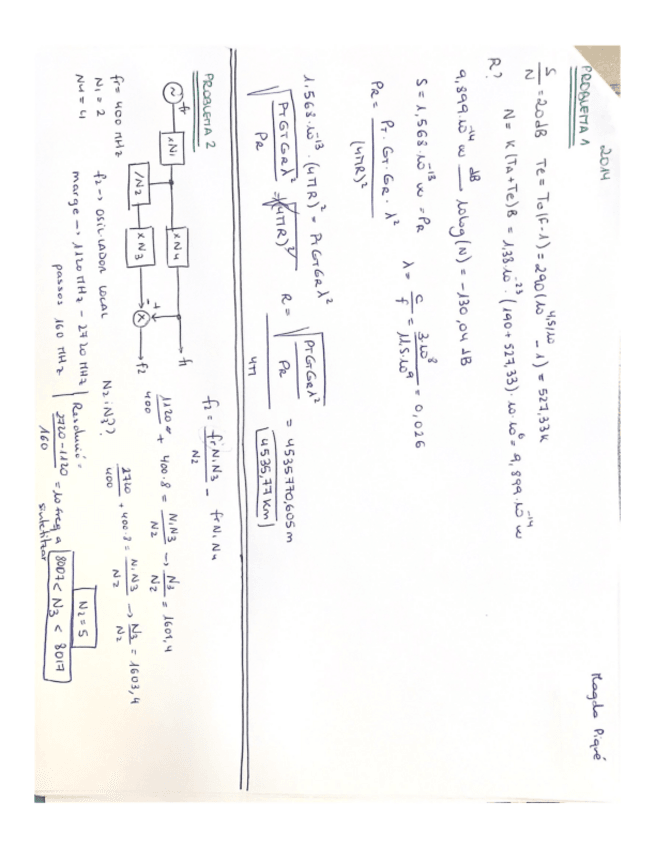 2014
Magda Piqué
PROBLEMA 1
S/N = 20dB Te = To(F-1) = 290(10^4,5/10 - 1) = 527,33K
N = K(TA+Te)B = 1,38·10^-23 · (190+527,33)·10·10^6 = 9,899·10^-14 w
R?
9,899·10^-14 w dB 10log(N) = -130,04 dB
S = 1,568·10^-13 w = PR λ = c/f = 3·10^8/11.5·10^9 = 0,026
PR = PT·GT·GR·λ²/(4πR)²
1,568·10^-13·(4πR)² = PTGTGRλ²
√(PTGTGRλ²/PR) = √(4πR)² R = √(PTGTGRλ²/PR)/4π = 4535770,605m
4535,77 Km
PROBLEMA 2
fr xN1 xN4 f1
/N2 xN3 - + x f2
f2 = frN1N3/N2 - frN1N4
fr = 400 MHz f2 → OSCILADOR LOCAL N2 i N3??
N1 = 2 marge → 1120 MHz - 2720 MHz
N4 = 4 passos 160 MHz
1120/400 + 400·8 = N1N3/N2 → N3/N2 = 1601,4
2720/400 + 400·8 = N1N3/N2 → N3/N2 = 1603,4
Resolució =
2720-1120/160 = 10 freq a sintetitzar
N2 = 5
8007 < N3 < 8017